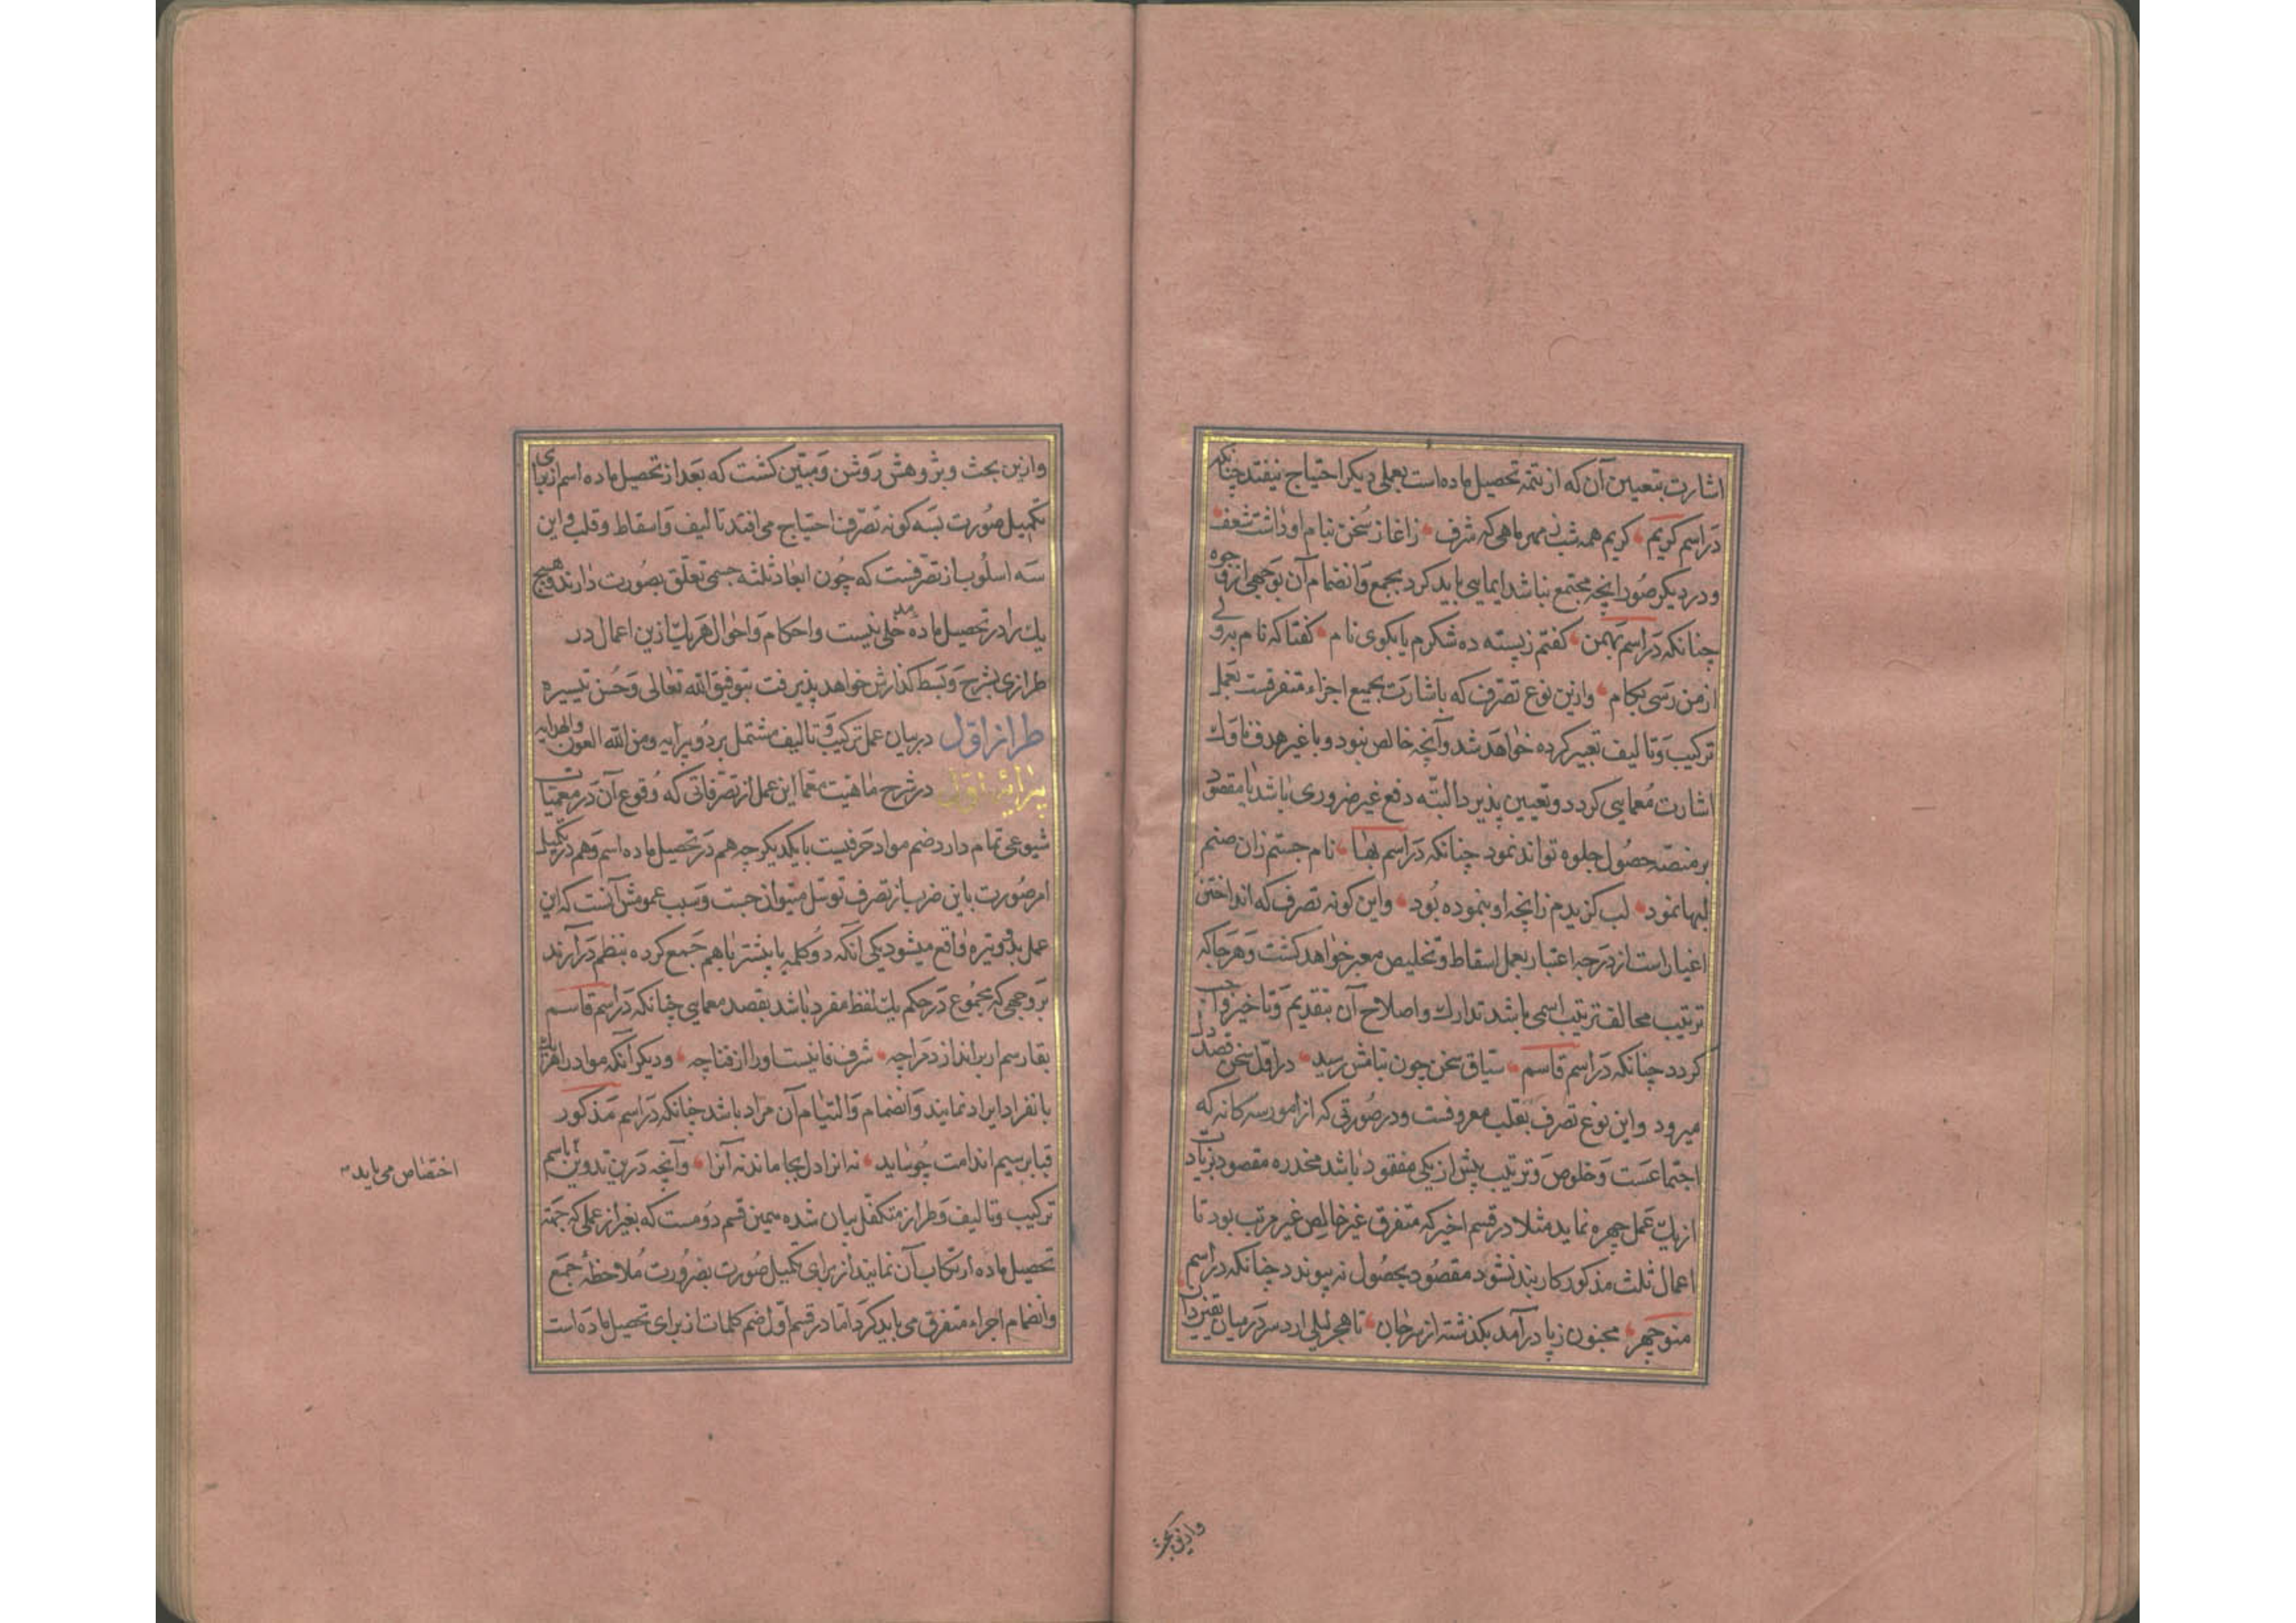 اشارت بتعیین آن که از تتمه تحصیل ماده است بعملی دیکر احتیاج نیفتد چنانکه
دراسم کریم کریم همه شب ز مهر ماهی که شرف زاغاز سخن بنام او داشت شعف
ودر دیکر صور انچه مجتمع نباشد ایمایی باید کرد بجمع وانضمام آن بوجهی از وجوه
چنانکه دراسم بهمن کفتم ز پسته ده شکرم یا بکوی نام کفتا که نام به
از من رسی بکام وازین نوع تصرف که باشارت بجمیع اجزاء متفرقست بعمل
ترکیب وتالیف تعبیر کرده خواهد شد وآنچه خالص نبود و با غیر هدف ناوک
اشارت معمایی کردد وتعیین پذیرد البته دفع غیر ضروری باشد تا مقصود
بر منصه حصول جلوه تواند نمود چنانکه دراسم بها نام جستم زان صنم
لبها نمود لب کزیدم زانچه او بنموده بود واین کونه تصرف که انداختن
اغیار است از درجه اعتبار بعمل اسقاط وتخلیص معبر خواهد کشت وهرجا که
ترتیب مخالف ترتیب اسمی باشد تدارک واصلاح آن بتقدیم وتاخیر واجب
کردد چنانکه دراسم قاسم سیاق سخن چون بنامش رسید در اول سخن قصد دل
میرود واین نوع تصرف بقلب معروفست ودر صورتی که از امور سه کانه که
اجتماعست وخلوص وترتیب بیش از یکی مفقود باشد مخدره مقصود بزیادت
از یک عمل چهره نماید مثلا در قسم اخیر که متفرق غیر خالص غیر مرتب بود تا
اعمال ثلث مذکور کار بند نشود مقصود بحصول نه پیوندد چنانکه دراسم
منوچهر مجنون ز پا درآمد بکذشته از سر جان تا هجر لیلی ارد سر در میان
وازین بحث
وازین بحث وپژوهش روشن ومبین کشت که بعد از تحصیل ماده اسم از برای
تکمیل صورت بسه کونه تصرف احتیاج می افتد تالیف واسقاط وقلب واین
سه اسلوب از تصرفست که چون ابعاد ثلثه جسمی تعلق بصورت دارند وهیچ
یک را در تحصیل ماده مدخلی نیست واحکام واحوال هر یک ازین اعمال در
طرازی بشرح وبسط کذارش خواهد پذیرفت بتوفیق الله تعالی وحسن تیسیره
طراز اول در بیان عمل ترکیب وتالیف مشتمل بر دو پیرایه ومن الله العون والهدایه
پیرایهٔ اول در شرح ماهیت معما این عمل از تصرفاتی که وقوع آن در معمیات
شیوعی تمام دارد ضم مواد حرفیست با یکدیکر چه هم در تحصیل ماده اسم وهم در تکمیل
امر صورت باین ضرب از تصرف توسل میتوان جست وسبب عمومش آنست که این
عمل بدو وتیره واقع میشود یکی انکه دو کلمه یا بیشتر با هم جمع کرده بنظم درآرند
بروجهی که مجموع در حکم یک لفظ مفرد باشد بقصد معمایی چنانکه دراسم قاسم
بقا رسم ار براندازد مراچه شرف فانیست اورا از فنا چه ودیکر آنکه مواد را هر یک
بانفراد ایراد نمایند وانضمام والتیام آن مراد باشد چنانکه دراسم مذکور
قبا بر سیم اندامت چو شاید نه انرا دل بجا ماند نه آنرا وآنچه درین تدوین باسم
ترکیب وتالیف وطراز متکفل بیان شده همین قسم دومست که بغیر از عملی که جهة
تحصیل ماده ارتکاب آن نمایند از برای تکمیل صورت بضرورت ملاحظهٔ جمع
وانضمام اجزاء متفرق می باید کرد اما در قسم اول ضم کلمات از برای تحصیل ماده است
اختصاص می یابد